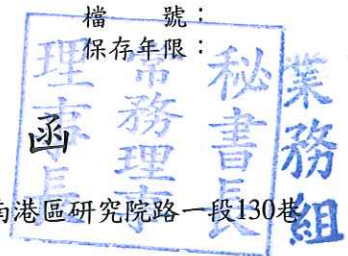 檔　　號：
保存年限：
理事長
常務理事
秘書長
業務組
函
南港區研究院路一段130巷